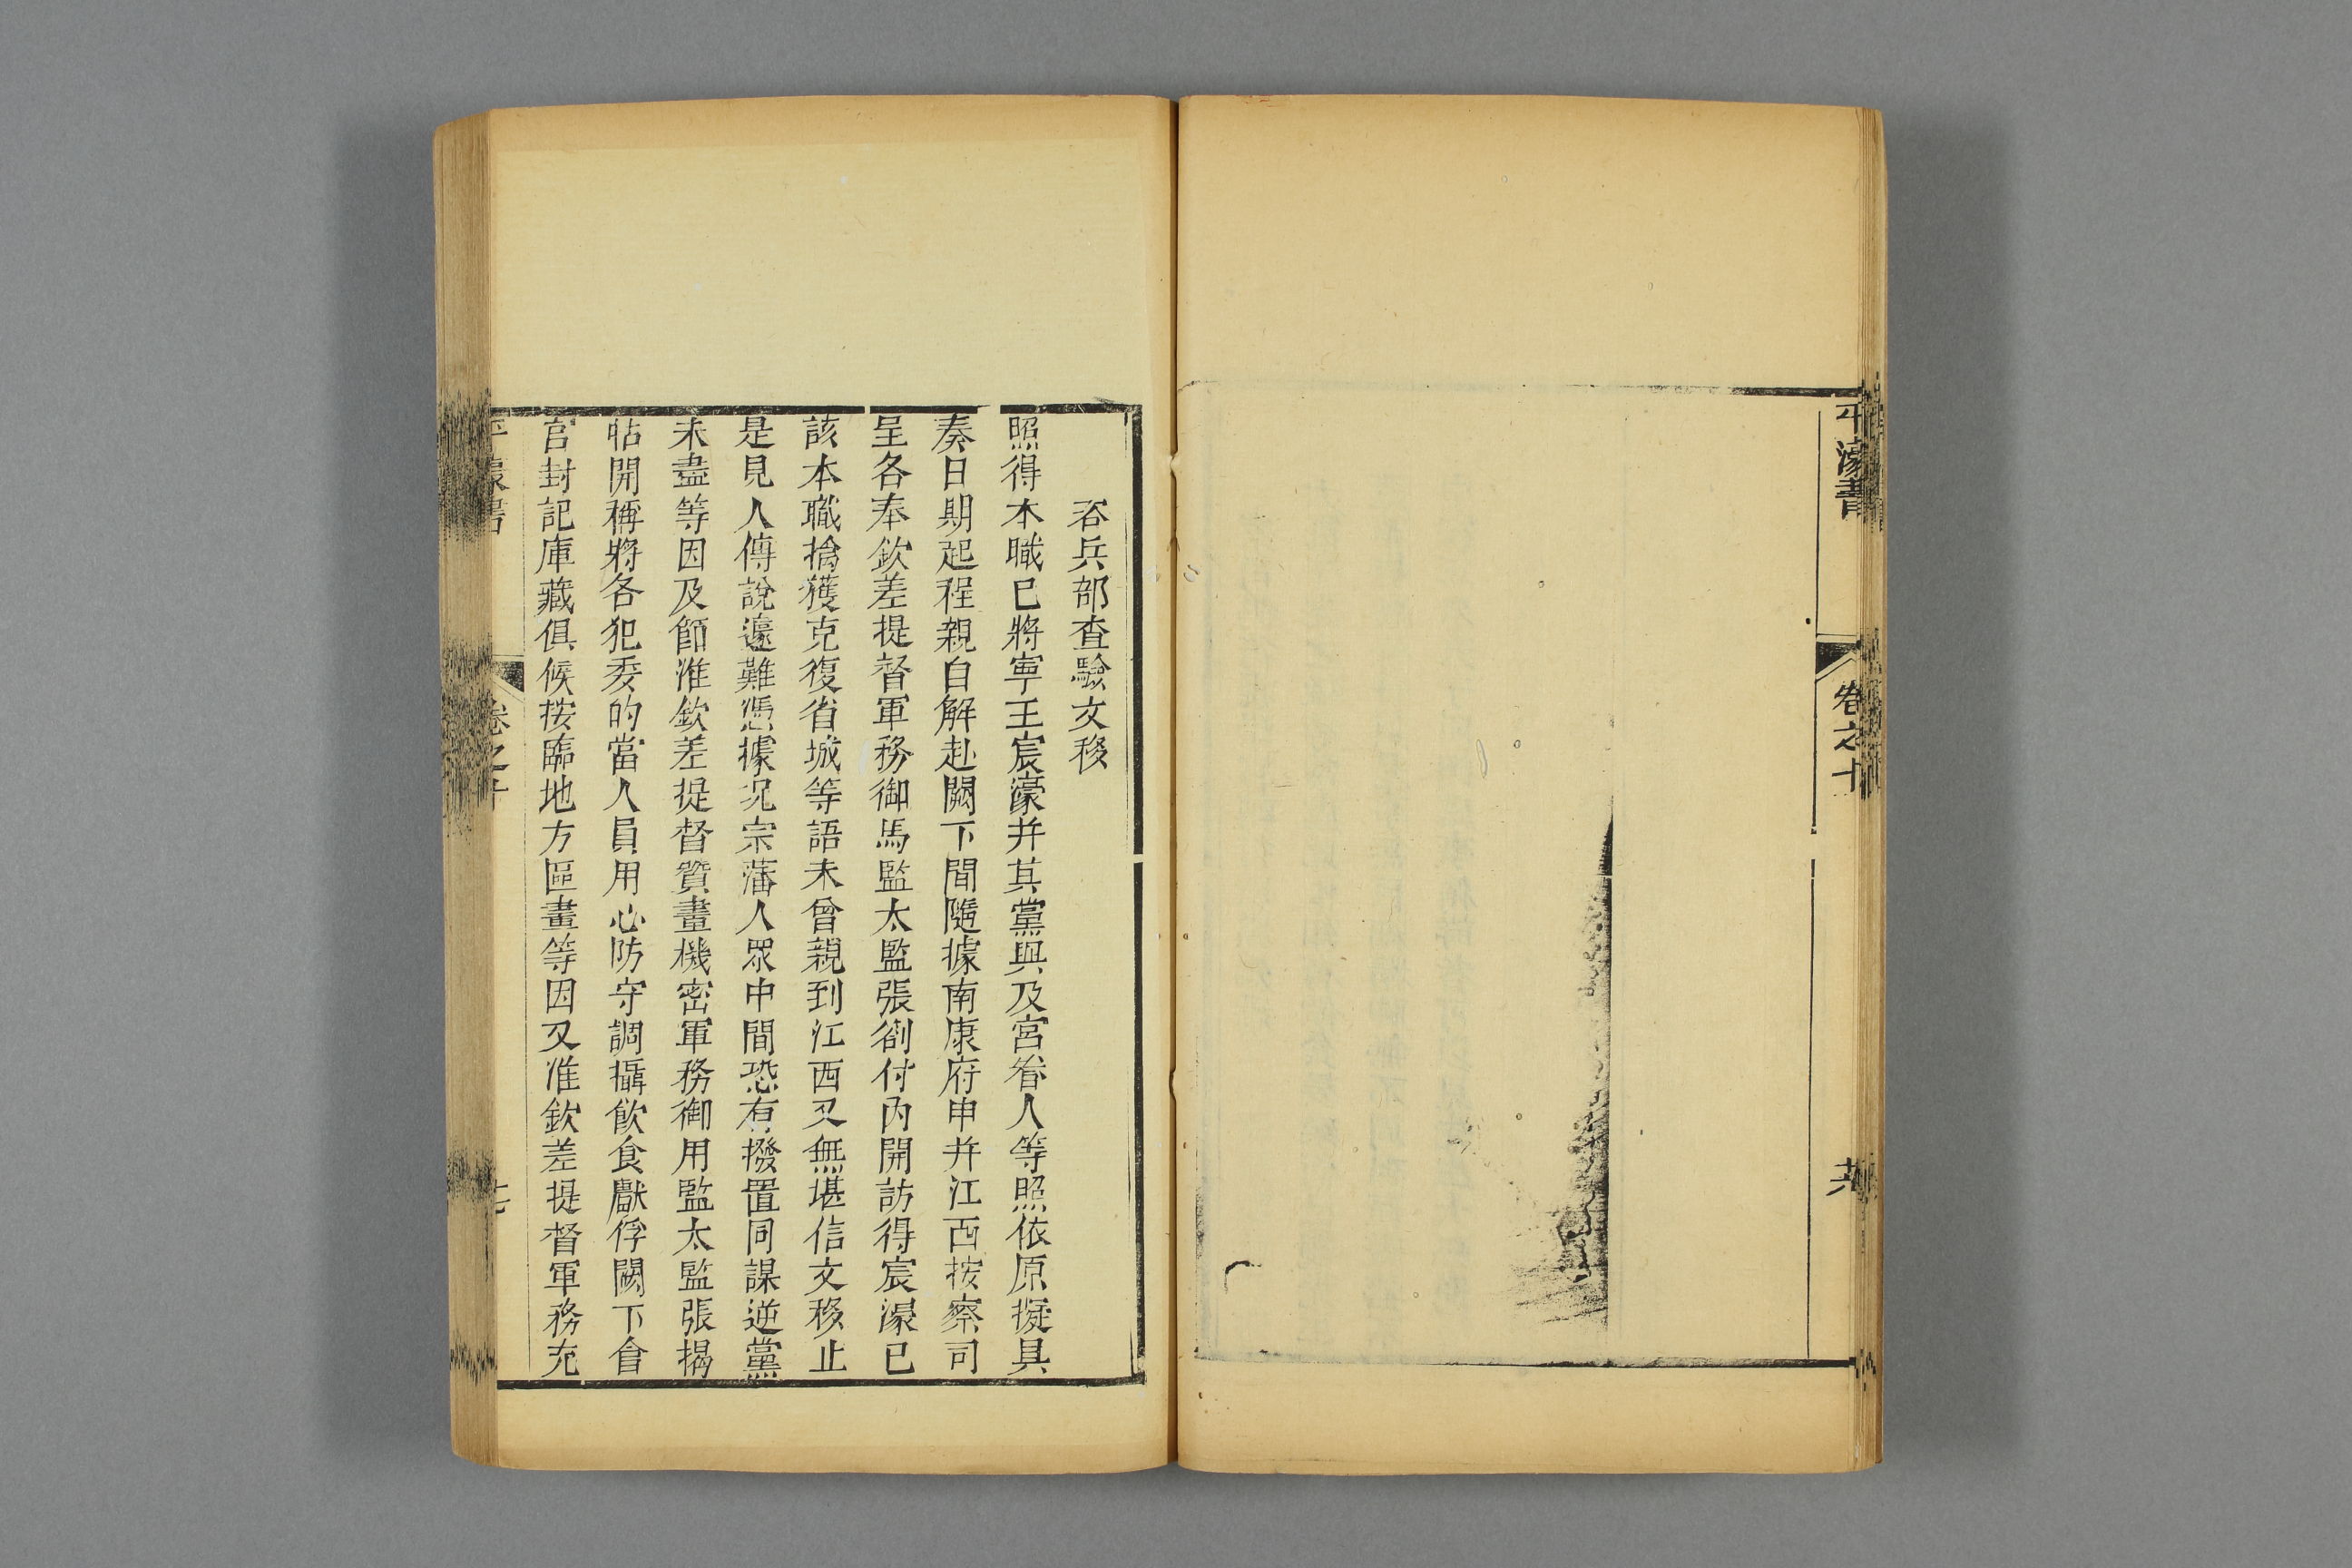 平濠書
卷之十
共
咨兵部查驗文移
照得本職已將寧王宸濠并其黨與及宮眷人等照依原擬具
奏日期起程親自解赴闕下間隨據南康府申并江西按察司
呈各奉欽差提督軍務御馬監太監張劄付內開訪得宸濠已
該本職擒獲克復省城等語未曾親到江西又無堪信文移止
是見人傳說遽難憑據况宗藩人眾中間恐有撥置同謀逆黨
未盡等因及節准欽差提督贊畫機密軍務御用監太監張揭
帖開稱將各犯委的當人員用心防守調攝飲食獻俘闕下會
官封記庫藏俱候按臨地方區畫等因又准欽差提督軍務充
平濠書
卷之十